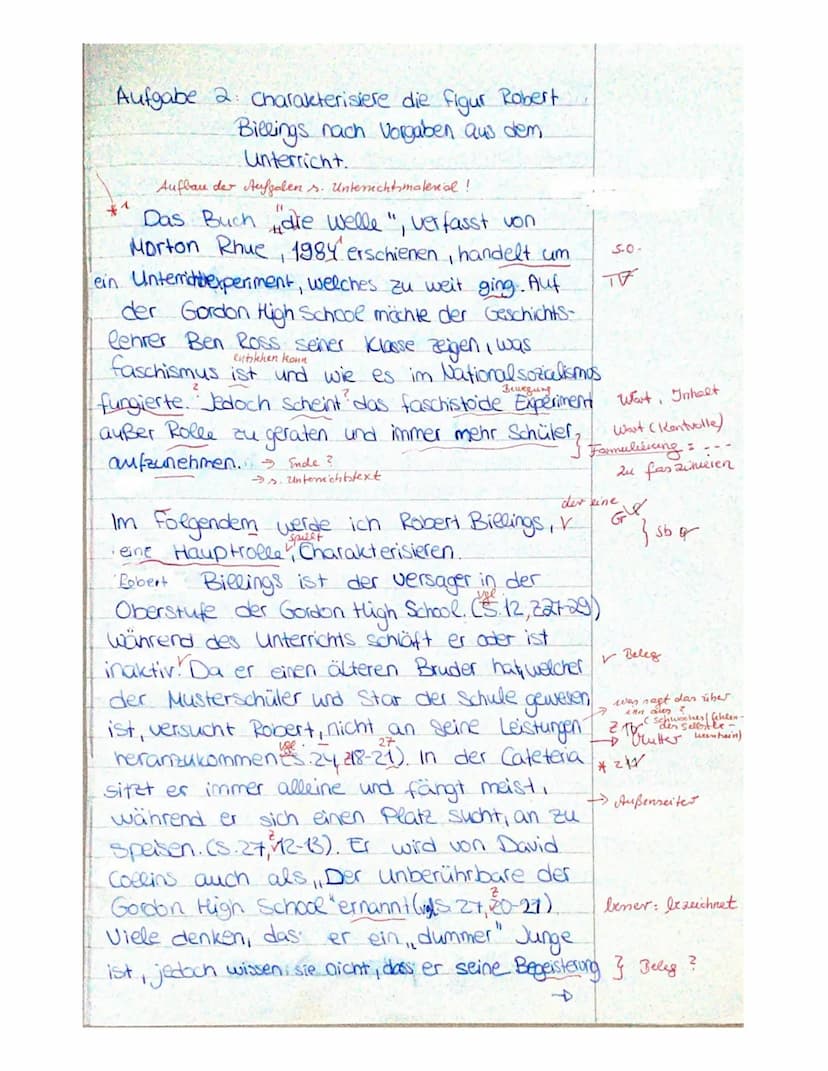 Aufgabe 2: Charakterisiere die Figur Robert
Billings nach Vorgaben aus dem
Unterricht.
Aufbau der Aufgaben s. Unterrichtsmaterial!
*1
Das Buch „die Welle", verfasst von
Morton Rhue, 1984 erschienen, handelt um
s.o.
ein Unterrichtexperiment, welches zu weit ging. Auf
TF
der Gordon High School möchte der Geschichts-
lehrer Ben Ross seiner Klasse zeigen, was
entstehen kann
Faschismus ist und wie es im Nationalsozialismus
? ? Bewegung
fungierte. Jedoch scheint das faschistoide Experiment
Wort, Inhalt
außer Rolle zu geraten und immer mehr Schüler
Wort (Kontrolle)
} Formulierung = ---
aufzunehmen. → Ende?
zu faszinieren
→ s. Unterrichtstext
der eine
Im Folgendem werde ich Robert Billings, √
Gr
} Sb
spielt
eine Hauptrolle, Charakterisieren.
Robert Billings ist der Versager in der
vgl.
Oberstufe der Gordon High School. (S. 12, Z27-29)
Während des Unterrichts schläft er oder ist
inaktiv. Da er einen älteren Bruder hat, welcher
√ Beleg
der Musterschüler und Star der Schule gewesen
→ was sagt das über
ihn aus?
ist, versucht Robert, nicht an seine Leistungen
(Schwaches / fehlen-
des Selbstbe-
wusstsein)
→ Mutter
vgl. 27
heranzukommen (S. 24, Z18-21). In der Cafeteria
* ZW
sitzt er immer alleine und fängt meist,
→ Außenseiter
während er sich einen Platz sucht, an zu
Z
speisen. (S. 27, 12-13). Er wird von David
Collins auch als „Der Unberührbare der
Z
Gordon High School" ernannt (vgl. S. 27, 20-21).
besser: bezeichnet
Viele denken, das er ein „dummer" Junge
ist, jedoch wissen sie nicht, dass er seine Begeisterung
} Beleg?
→